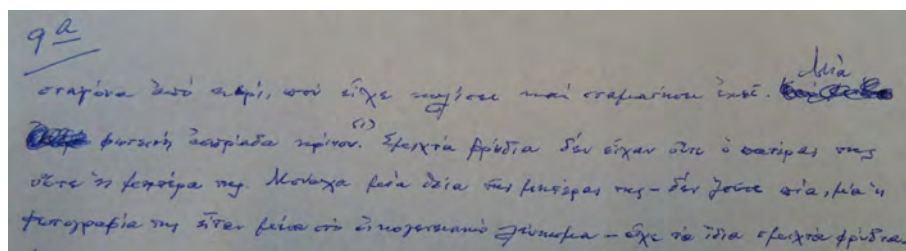 9α
Μιὰ
σταγόνα ἀπὸ κερί, ποὺ εἶχε κυλίσει καὶ σταματήσει ἐκεῖ.
φωτεινὴ ἀσπράδα κρίνου. (1) Σμιχτὰ φρύδια δὲν εἶχαν οὔτε ὁ πατέρας της
οὔτε ἡ μητέρα της. Μονάχα μιὰ θεία τῆς μητέρας της – δὲν ζοῦσε πιά, μὰ ἡ
φωτογραφία της εἶταν μέσα στὸ οἰκογενειακὸ λεύκωμα – εἶχε τὰ ἴδια σμιχτὰ φρύδια.